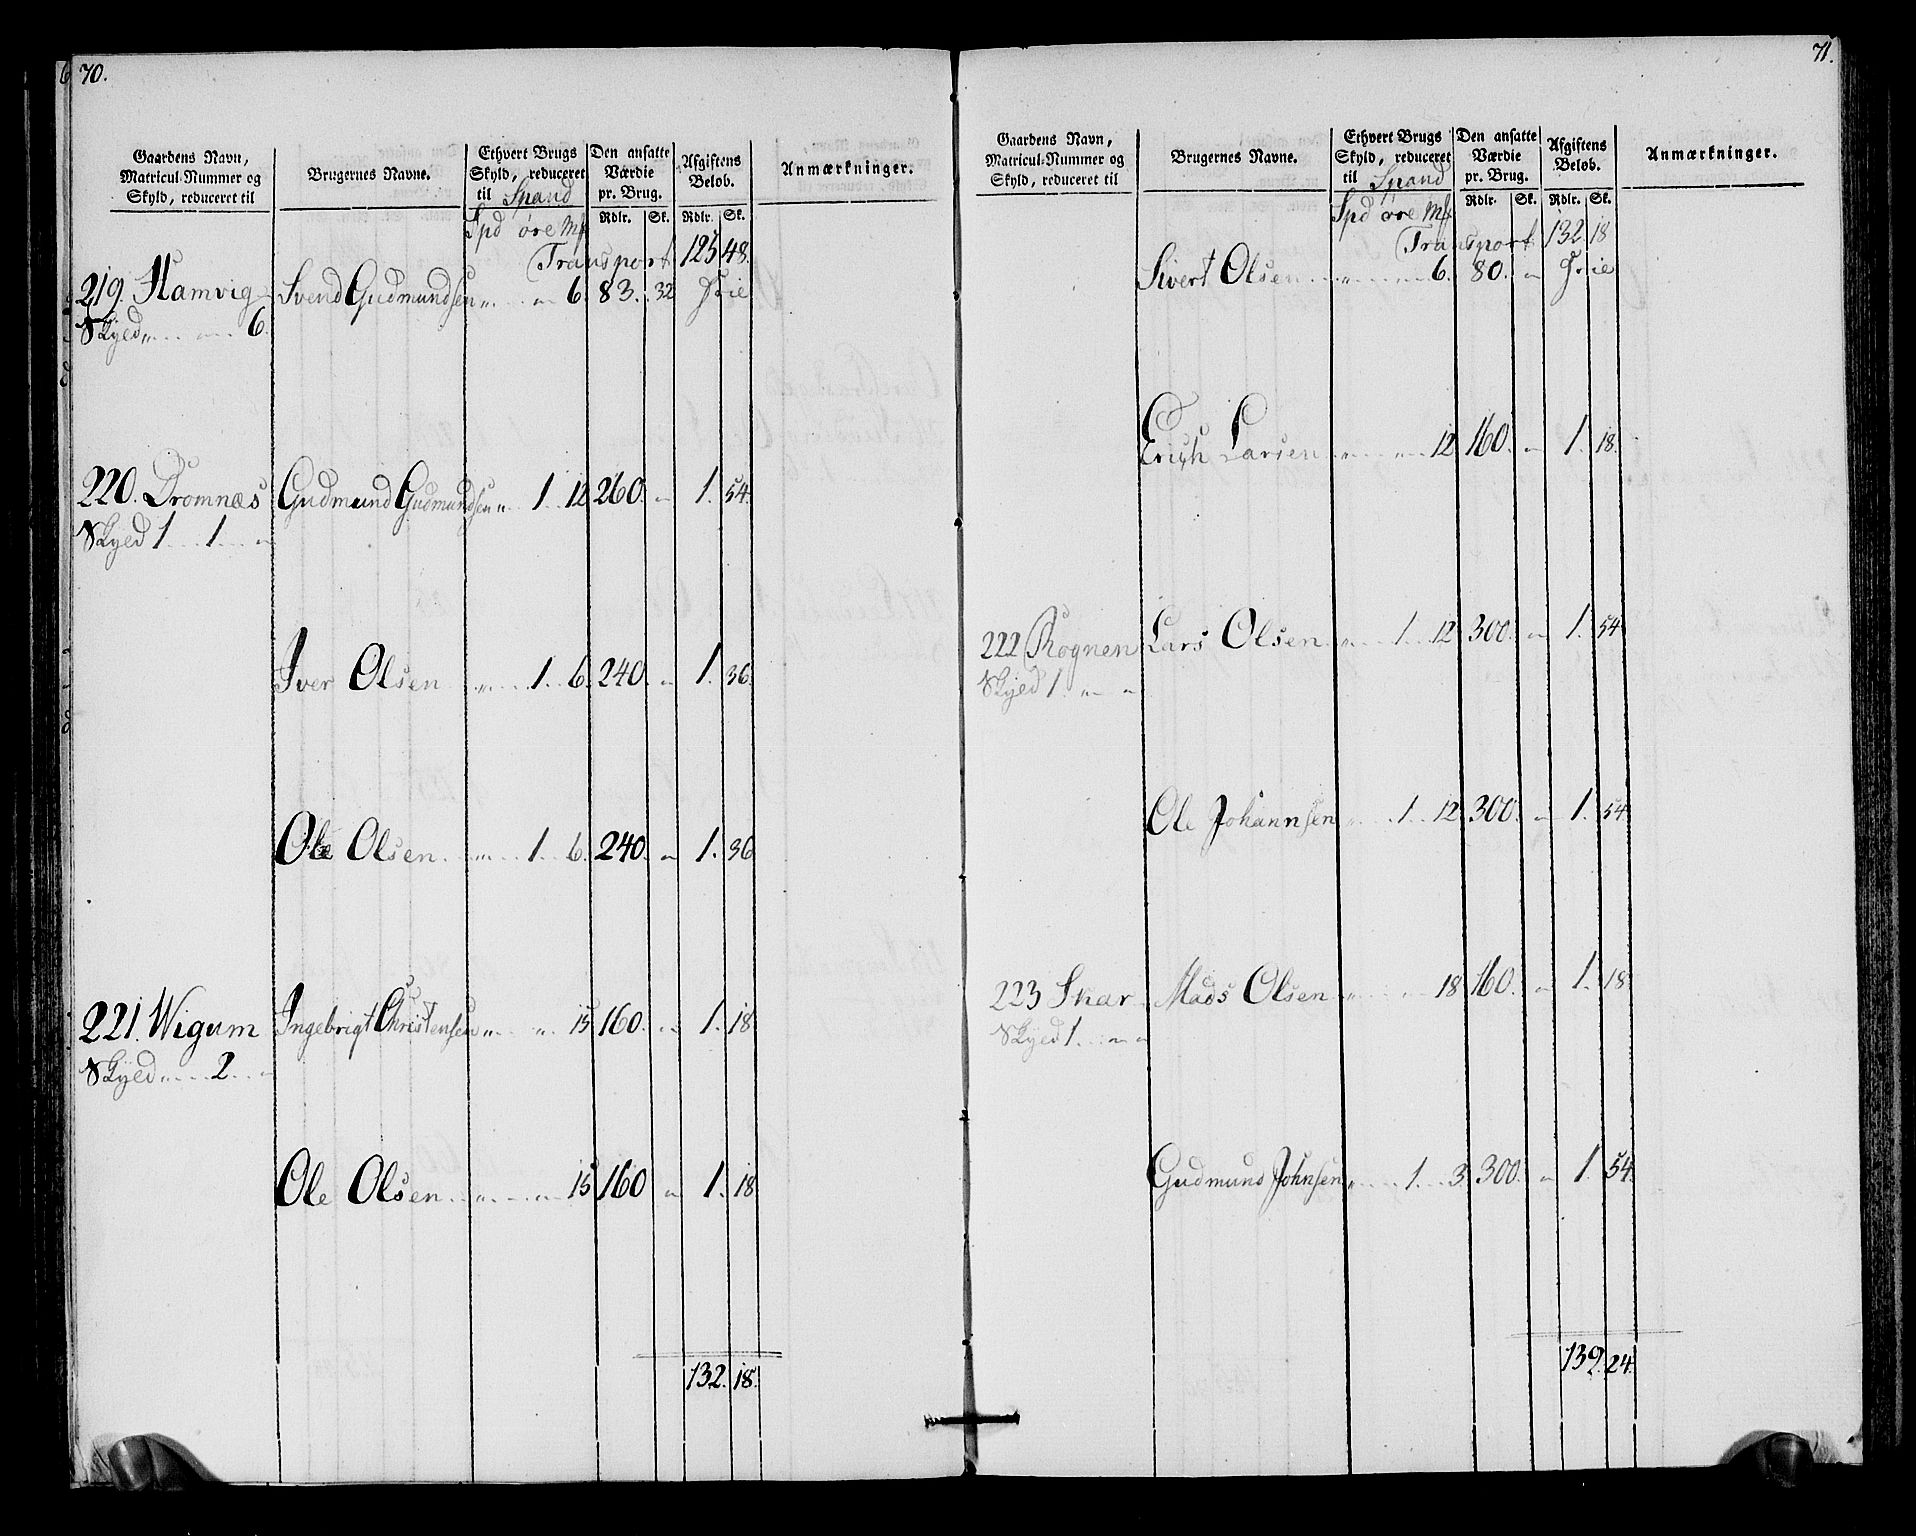 70.
Gaardens Navn, Matricul-Nummer og Skyld, reduceret til | Brugernes Navne. | Ethvert Brugs Skyld, reduceret til Spand | Den ansatte Værdie pr. Brug. | Afgiftens Belob. | Anmærkninger.
Rdlr. Sk. Rdlr. Sk.
Spd øre Mf
Transport 125 48.
219. Hamvig Svend Gudmundsen „ „ 6. 83. 32 Frie
Skyed „ „ 6.
220. Dromnæs Gudmund Gudmundsen „ 1. 12 260. „ 1. 54.
Skyed 1 1 „
Iver Olsen „ 1. 6. 240. „ 1. 36.
Ole Olsen „ 1. 6. 240. „ 1. 36
221. Wigum Ingebrigt Christensen „ „ 15 160. „ 1. 18
Skyed „ 2 „
Ole Olsen „ „ 15 160 „ 1. 18
132. 18.
71.
Gaardens Navn, Matricul-Nummer og Skyld, reduceret til | Brugernes Navne. | Ethvert Brugs Skyld, reduceret til Spand | Den ansatte Værdie pr. Brug. | Afgiftens Belob. | Anmærkninger.
Rdlr. Sk. Rdlr. Sk.
Spd øre Mf
Transport 132 18
Sivert Olsen „ „ 6. 80. „ Frie
Erich Larsen „ „ 12 160. „ 1. 18.
222 Rognen Lars Olsen „ 1. 12 300. „ 1. 54
Skyed 1. „ „
Ole Johannsen „ 1. 12 300. „ 1. 54
223 Skar Mads Olsen „ „ 18 160. „ 1. 18
Skyed 1. „ „
Gudmund Johnsen „ 1. 3. 300. „ 1. 54.
139. 24.